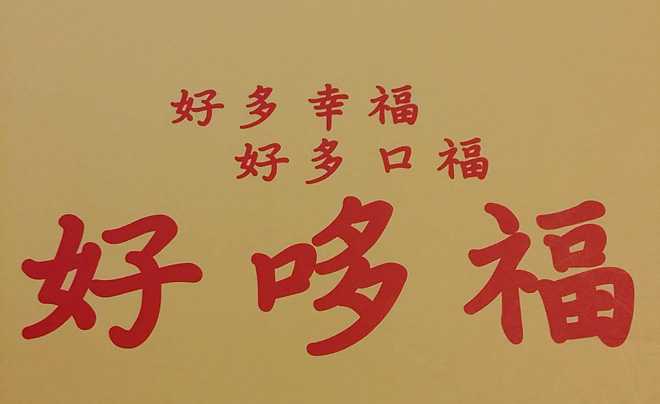 好多幸福
好多口福
好哆福